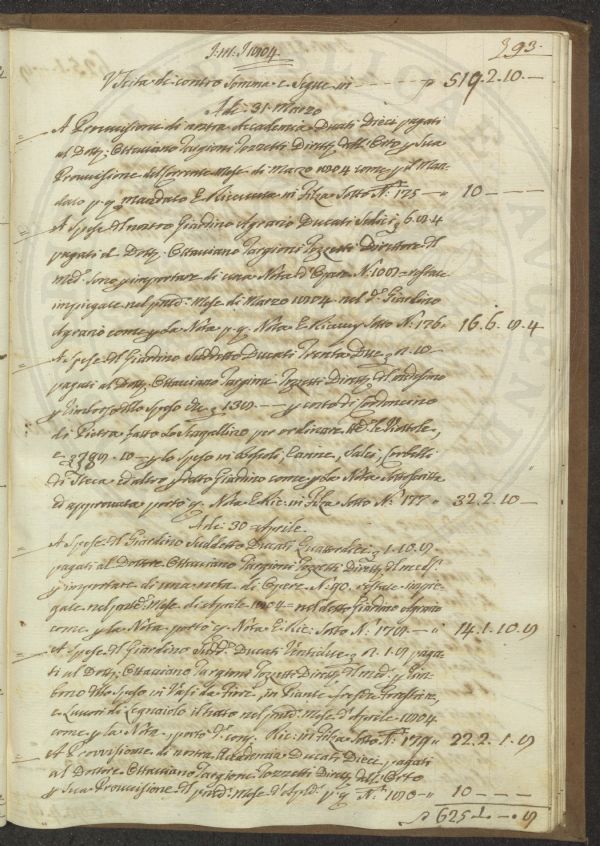 J. M. J. 1804. 93.
Uscita di contro Somma e Segue in 519.2.10.—
Adi: 31 Marzo
A Provvisione di nostra Accademia Ducati Dieci pagati
al Dott: Ottaviano Targioni Tozzetti Dirett: dell'Orto p Sua
Provvisione del corrente Mese di Marzo 1804 come p il Man
dato p q mandato E Ricevuta in Filza Sotto N: 175 — 10 — — —
A Spese del nostro Giardino Agrario Ducati Sedici 6.8.4
pagati al Dott: Ottaviano Targioni Tozzetti Direttore del
med: Sono p importare di una Nota d'Opere N: restate
impiegate nel pred: Mese di Marzo 1804 nel d: Giardino
Agrario come p la Nota p q Nota E Ricev Sotto N: 176. 16.6.8.4
A Spese del Giardino Suddetto Ducati Trenta Due 2.10
pagati al Dott: Ottaviano Targioni Tozzetti Dirett: del medesimo
p Rimborso dello Speso di costo di Cordoncino
di Pietra fatto
e 10 — p lo Speso in Canne, Salci, Corbelli
ed altro p detto Giardino come p la Nota Sottoscritta
ed approvata Nota E Ric: in Filza Sotto N: 177 32.2.10—
Adi: 30 Aprile.
A Spese del Giardino Suddetto Ducati Quattordici 1.10.8
pagati al Dottore Ottaviano Targioni Tozzetti Dirett: del med:
p importare di una nota di Opere N: 90. restate impie
gate nel pred: Mese di Aprile 1804 = nel detto Giardino Agrario
come p la Nota Nota E Ric: Sotto N: 178 — 14.1.10.8
A Spese del Giardino Sudd: Ducati Ventidue 2.1.8 paga
ti al Dott: Ottaviano Targioni Tozzetti Dirett: del med: p Rim
borso dello Speso in Vasi da Fiori, in Piante Forestiere,
e Lavori di Legnaiolo il tutto nel pred: Mese d'Aprile 1804
come p la Nota Ric: in Filza Sotto N: 179 22.2.1.8
A Provvisione di nostra Accademia Ducati Dieci pagati
al Dottore Ottaviano Targioni Tozzetti Dirett: dell'Orto
p Sua Provvisione del pred: Mese d'Aple: p q N: 180 — 10 — — —
625.1.—.8